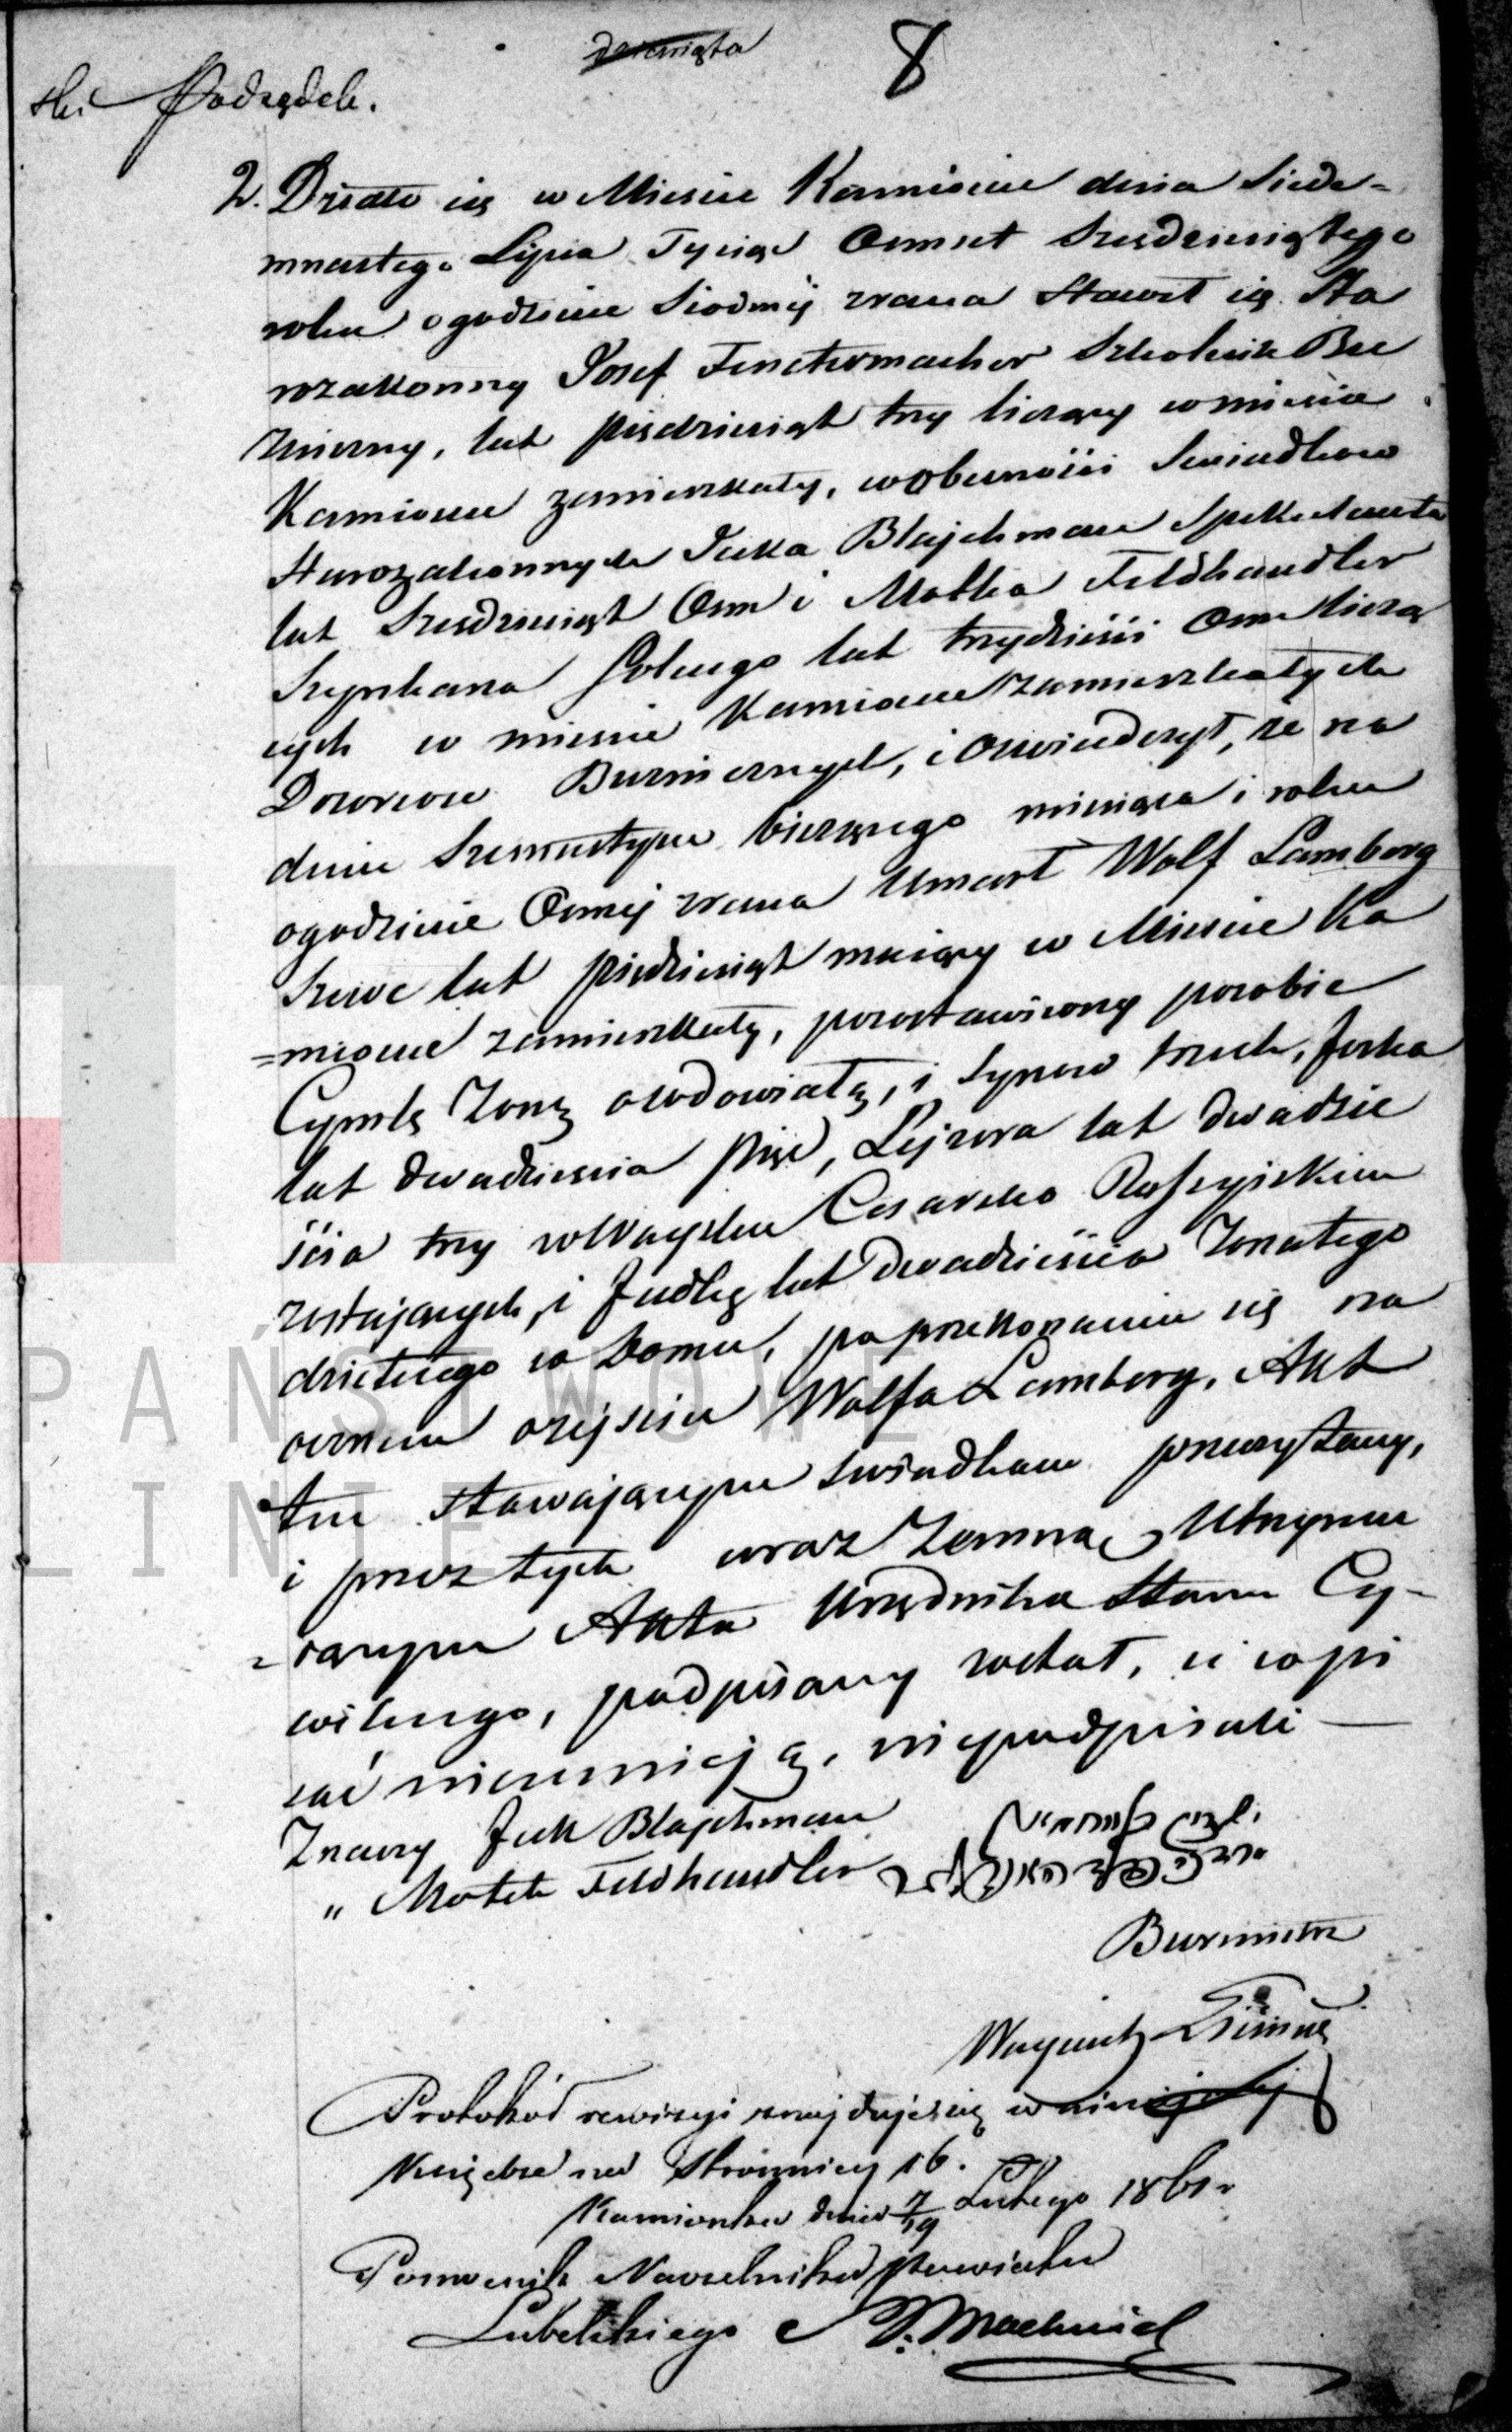 dziewięta
8
ski Podrządek.
2. Działo się w Mieście Kamionce dnia Siede-
mnastego Lipca Tysiąc Ośmset Sześdziesiątego
roku o godzinie Siodmej zrana Stawił się Sta
rozakonny Josef Fenstermacher Szkolnik Bu
żniczny, lat piędziesiąt trzy liczący w mieście
Kamionce zamieszkały, w obecności Swiadkow
Starozakonnych Icka Blajchman Spekulanta
lat Sześdziesiąt Osm i Motka Feldhandler
Szynkarza Solnego lat trzydzieści Osm licza
cych w mieście Kamionce zamieszkałych
Dozorcow Bużnicznych, i Oswiadczył, że na
dniu Szesnastym bieżącego miesiąca i roku
o godzinie Osmej zrana Umarł Wolf Lamberg
Szewc lat piędziesiąt maiący w Mieście Ka
=mionce zamieszkały, pozostawiony po sobie
Cymlę Zonę owdowiałą, i Synow trzech, Joska
lat dwadzieścia pięć, Lejzora lat dwadzie
ścia trzy w Woysku Cesarsko Rossyiskim
zostających, i Judkę lat dwadzieścia Zonatego
dzietnego w domu, po przekonaniu się na
ocznem o zejściu Wolfa Lamberg, Akt
ten Stawającym Swiadkom przeczytany,
i przez tych wraz Zemną Utrzymu
=iącym Akta Urzędnika Stanu Cy-
wilnego, podpisany został, ci co pi
sać nieumieją, niepodpisali —
Znany Icek Blajchman
" Motek Feldhandler
Burmistrz
Protokół rewizyi znajduje się w niniejszej
Księdze na Stronnicy 16.
Kamionka dnia 7/19 Lutego 1861 r
Pomocnik Naczelnika Powiatu
Lubelskiego
PAŃSTWOWE
LINIE